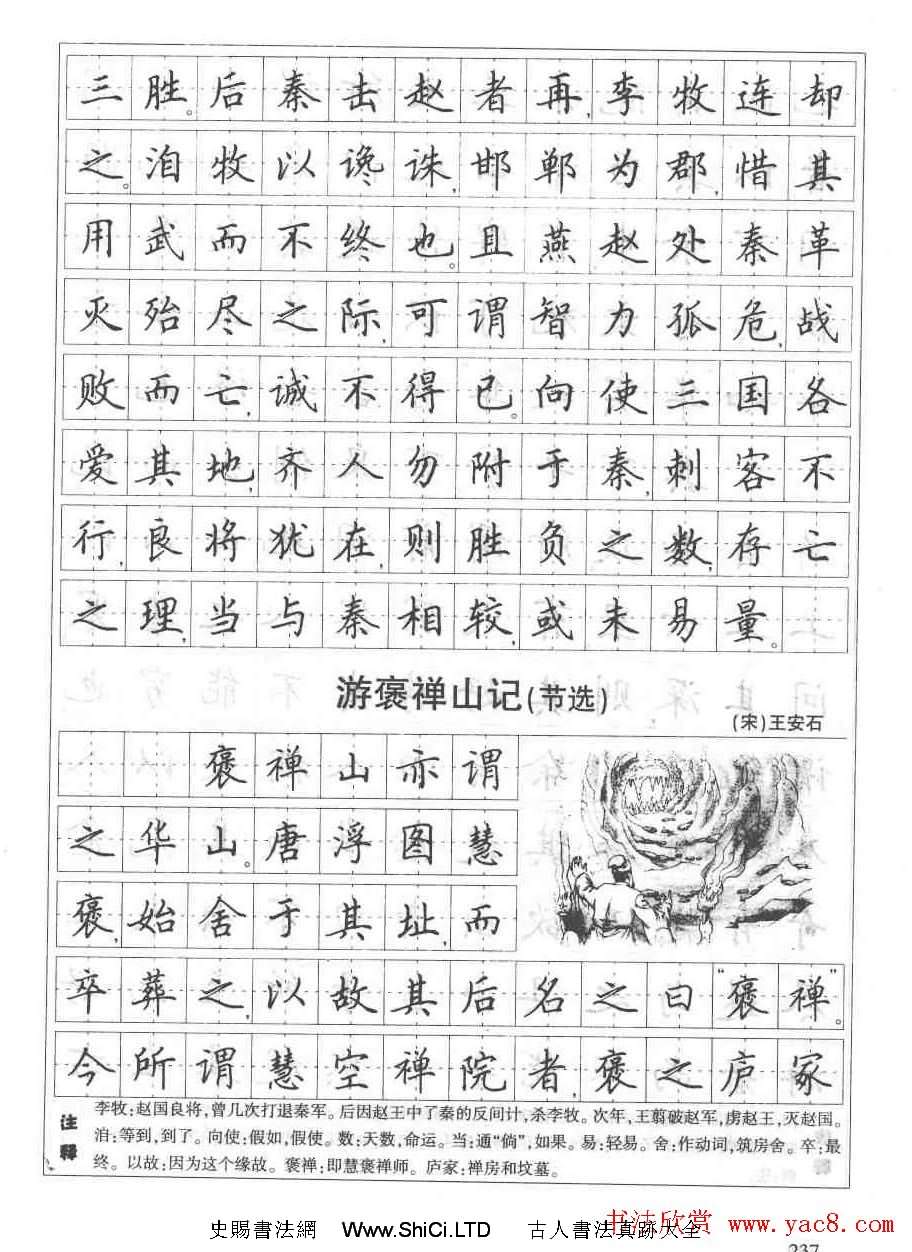 三胜。后秦击赵者再,李牧连却
之。洎牧以谗诛,邯郸为郡,惜其
用武而不终也。且燕赵处秦革
灭殆尽之际,可谓智力孤危,战
败而亡,诚不得已。向使三国各
爱其地,齐人勿附于秦,刺客不
行,良将犹在,则胜负之数,存亡
之理,当与秦相较,或未易量。
游褒禅山记(节选)
(宋)王安石
褒禅山亦谓
之华山。唐浮图慧
褒,始舍于其址,而
卒葬之,以故其后名之曰“褒禅”。
今所谓慧空禅院者,褒之庐冢
注释
李牧:赵国良将,曾几次打退秦军。后因赵王中了秦的反间计,杀李牧。次年,王翦破赵军,虏赵王,灭赵国。
洎:等到,到了。向使:假如,假使。数:天数,命运。当:通“倘”,如果。易:轻易。舍:作动词,筑房舍。卒:最
终。以故:因为这个缘故。褒禅:即慧褒禅师。庐冢:禅房和坟墓。
书法欣赏 www.yac8.com
史賜書法網 Www.ShiCi.LTD 古人書法真跡大全
237